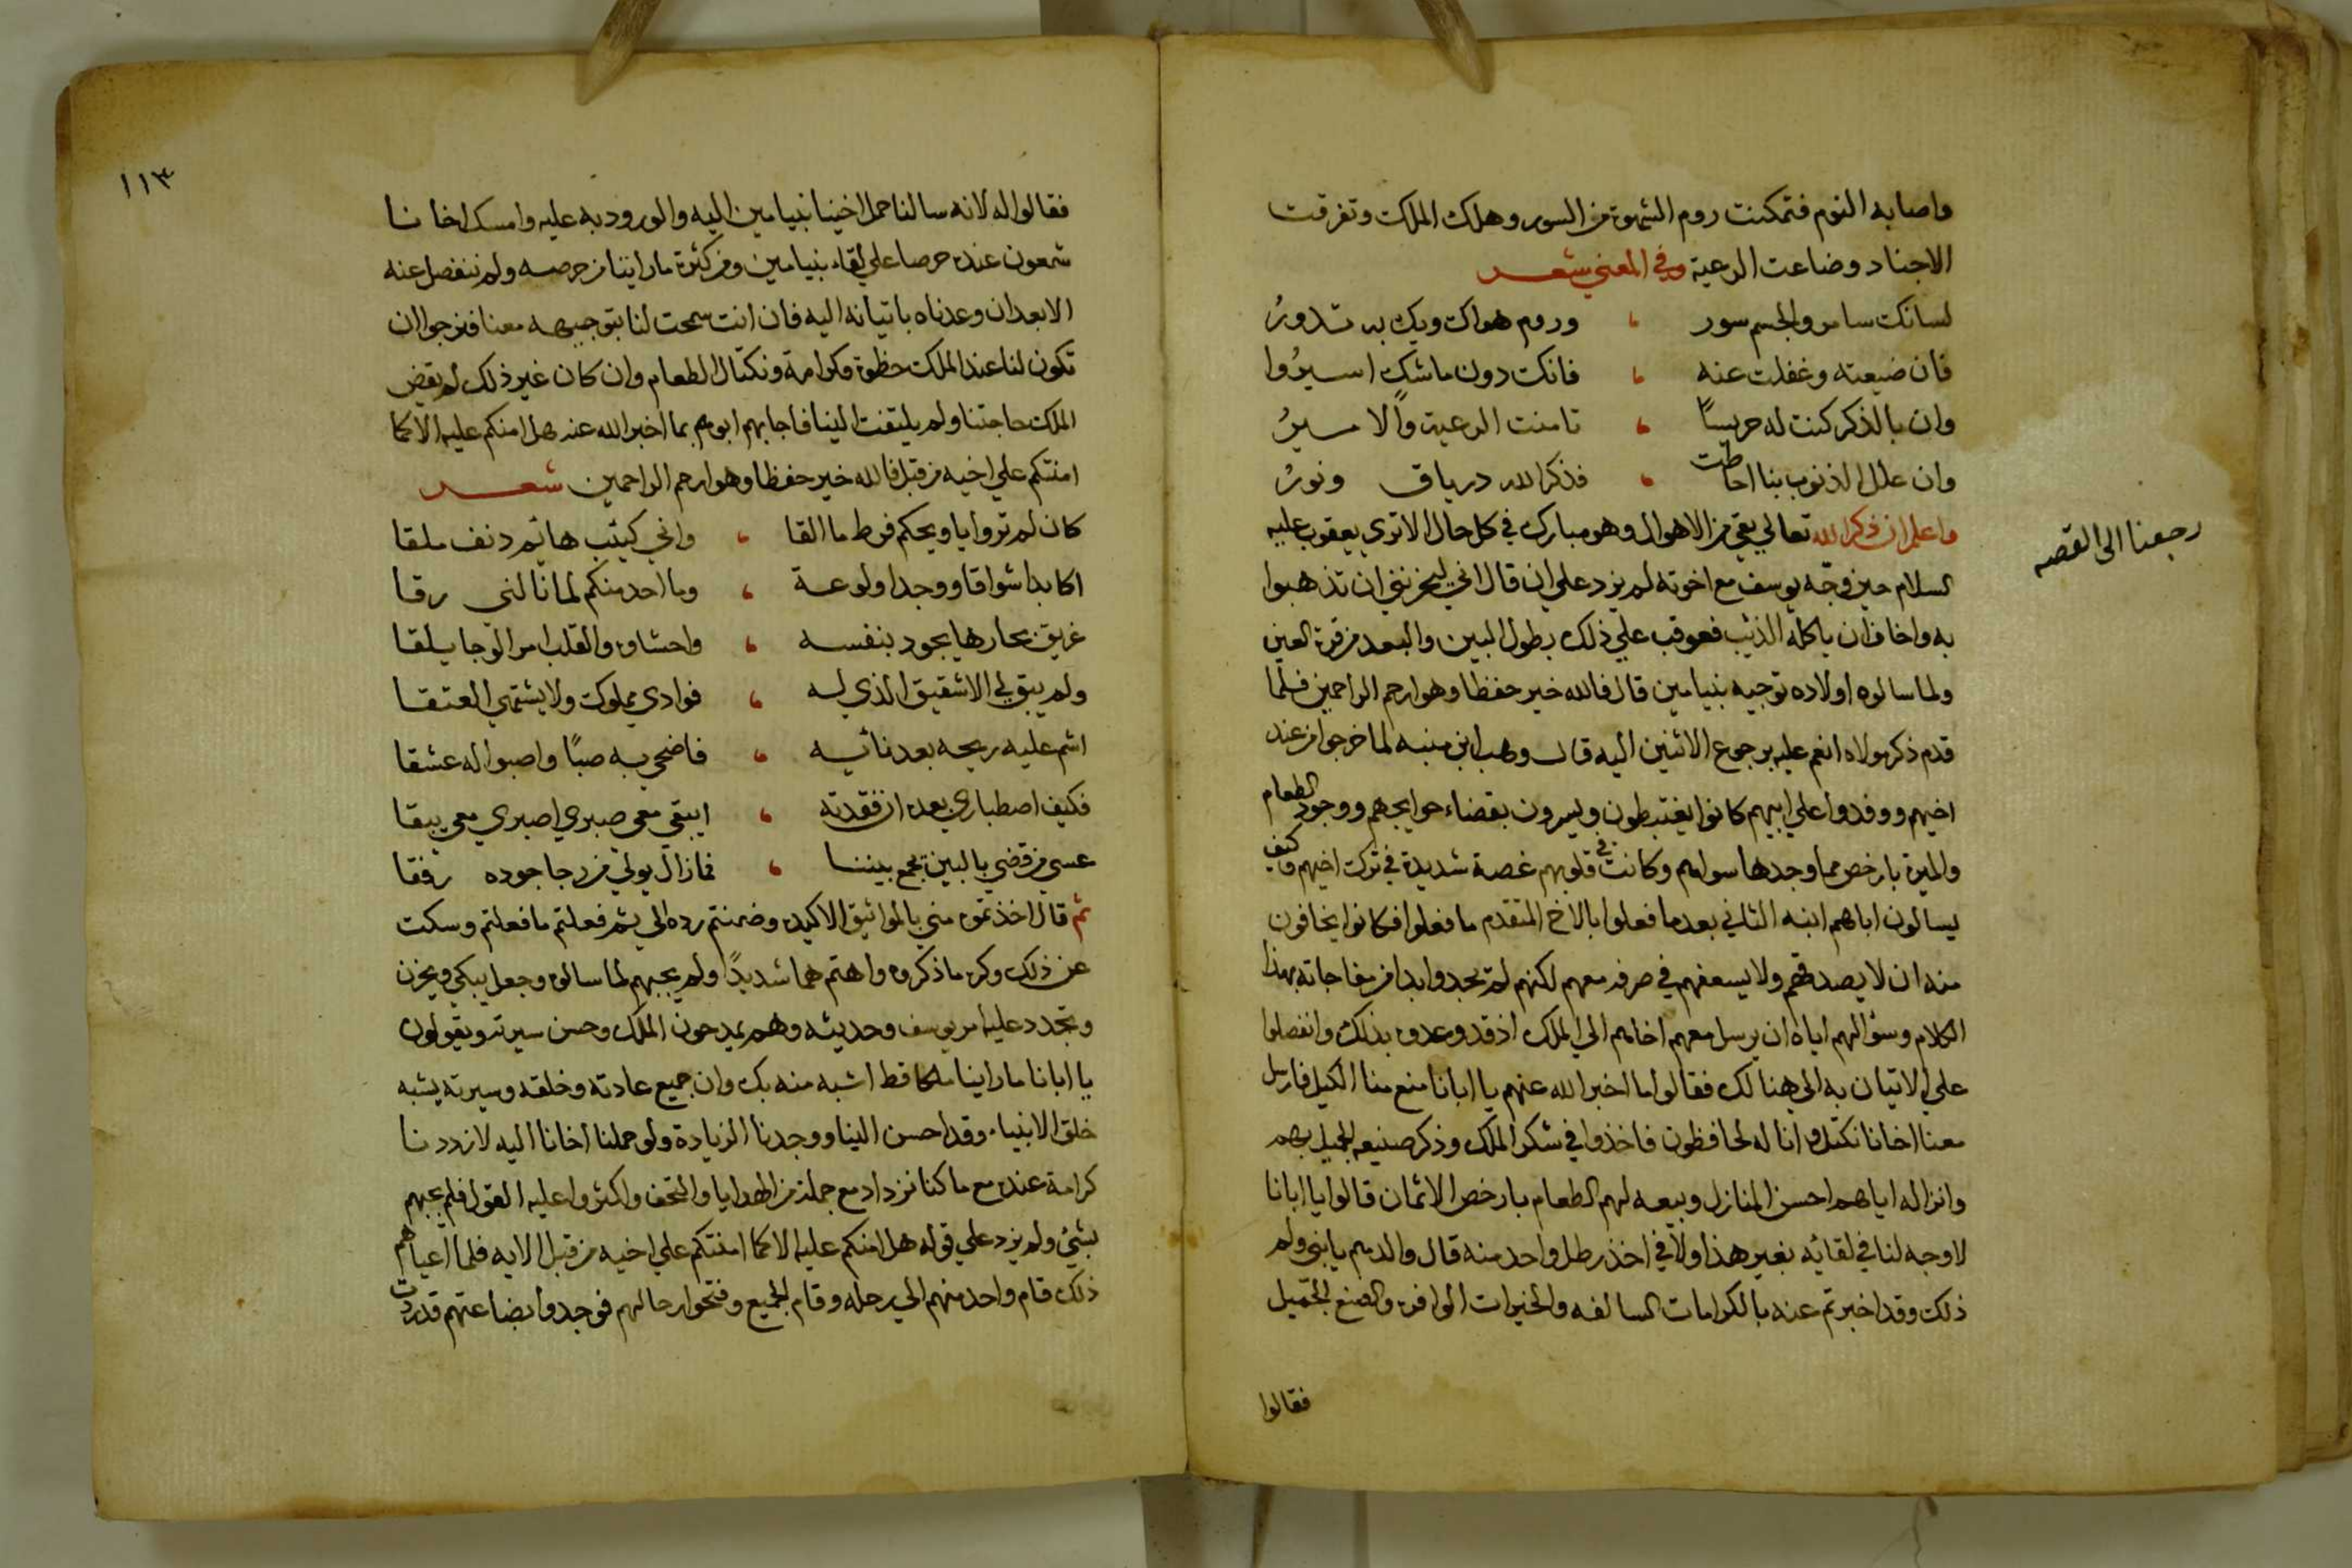 واصابه النوم فتمكنت روم الشهوة من السور وهلك الملك وتفرقت
الاجناد وضاعت الرعية وفي المعني شعر
لسانك سامر والجسم سور وروم هواك ويك به تدورُ
فان ضيعته وغفلت عنه فانك دون ماشك اسيرُوا
وان بالذكر كنت له حريسًا تامنت الرعية والا ميرُ
وان علل الذنوب بنا احاطت فذكر الله درياق ونورُ
واعلم ان ذكر الله تعالي يقي من الاهوال وهو مبارك في كل حال الا تري يعقوب عليه
رجعنا الى القصه
السلام حين وجّه يوسف مع اخوته لم يزد علي ان قال اني ليحزنني ان تذهبوا
به واخاف ان ياكله الذئب فعوقب علي ذلك بطول البين والبعد من قرة العين
ولما سالوه اولاده توجيه بنيامين قال فالله خير حفظا وهو ارحم الراحمين فلما
قدم ذكر مولاه انعم عليه برجوع الاثنين اليه قال وهب ابن منبه لما خرجوا من عند
اخيهم ووفدوا علي ابيهم كانوا يغتبطون ويسرون بقضاء حوايجهم ووجود الطعام
والميرة بارخص مما وجدها سواهم وكانت في قلوبهم غصة شديدة في ترك اخيهم وكيف
يسالون اباهم ابنه الثاني بعد ما فعلوا بالاخ المتقدم ما فعلوا فكانوا يخافون
منه ان لا يصدقهم ولا يسعفهم في صرفه معهم لكنهم لم يجدوا بدا من مفاجاته بهذا
الكلام وسؤالهم اياه ان يرسل معهم اخاهم الي الملك اذ قد وعدوه بذلك وانفصلوا
علي الاتيان به الي هنالك فقالوا ما اخبر الله عنهم يا ابانا منع منا الكيل فارسل
معنا اخانا نكتل وانا له لحافظون فاخذوا في شكر الملك وذكر صنيعه الجميل بهم
وانزاله اياهم احسن المنازل وبيعه لهم الطعام بارخص الاثمان قالوا يا ابانا
لا وجه لنا في لقائه بغير هذا ولا في اخذ رطل واحد منه قال والدهم يا بني ولم
ذلك وقد اخبرتم عنه بالكرامات السالفه والخيرات الوافره والصنع الجميل
فقالوا
١١٣
فقالوا له لانه سالنا حمل اخينا بنيامين اليه والورود به عليه وامسك اخانا
شمعون عنده حرصا علي لقاء بنيامين ومن كثرة ما راينا من حرصه ولم ننفصل عنه
الا بعد ان وعدناه باتيانه اليه فان انت سمحت لنا بتوجيهه معنا فنرجوا ان
تكون لنا عند الملك حظوة وكرامة ونكتال الطعام وان كان غير ذلك لم يقض
الملك حاجتنا ولم يلتفت الينا فاجابهم ابوهم بما اخبر الله عنه هل امنكم عليه الا كما
امنتكم علي اخيه من قبل فالله خير حفظا وهو ارحم الراحمين شعر
كان لم تروا يا ويحكم فرط ما القا واني كئيب هائم دنف ملقا
اكابد اشواقا ووجدا ولوعة وما احد منكم لما نالني رقا
غريق بحارها يجود بنفسه واحشاوه والقلب من الوجا يلقا
ولم يبق لي الا شقيق الذي له فوادي مملوك ولا يشتهي العتقا
اشم عليه ريحه بعد نائيه فاضحي به صبًا واصبوا له عشقا
فكيف اصطباري بعده ان فقدته ايبقي معي صبري اصبري معي يبقا
عسي من قضي بالبين يجمع بيننا فمازال يولي من رجا جوده رفقا
ثم قال اخذتموه مني بالمواثيق الاكيده وضمنتم رده الي ثم فعلتم ما فعلتم وسكت
عن ذلك وكره ما ذكروه واهتم هما شديدًا ولم يجبهم لما سالوه وجعل يبكي ويحزن
وتجدد عليه امر يوسف وحديثه وهم يمدحون الملك وحسن سيرته ويقولون
يا ابانا ما راينا ملكا قط اشبه منه بك وان جميع عادته وخلقه وسيرته يشبه
خلق الانبياء وقد احسن الينا ووجدنا الزيادة ولو حملنا اخانا اليه لازددنا
كرامة عنده مع ما كنا نزداد مع جملة من الهدايا والتحف واكثروا عليه القول فلم يجبهم
بشيء ولم يزد علي قوله هل امنكم عليه الا كما امنتكم علي اخيه من قبل الايه فلما اعياهم
ذلك قام واحد منهم الي رحله وقام الجميع وفتحوا رحالهم فوجدوا بضاعتهم قد ردت